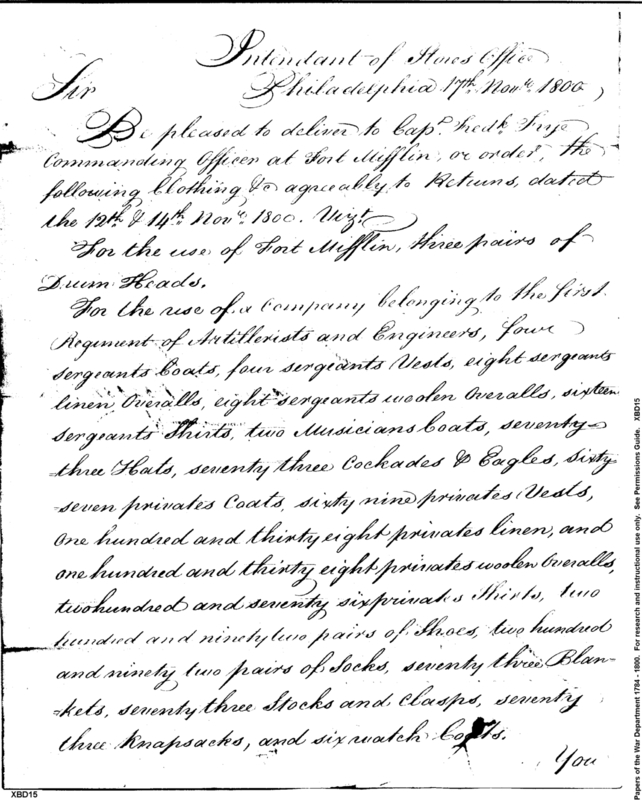 Intendant of Stores Office
Philadelphia 17th. Novr. 1800
Sir
Be pleased to deliver to Capn. Fredk. Frye
Commanding Officer at Fort Mifflin, or order, the
following Clothing &c agreeably to Returns, dated
the 12th. & 14th. Novr. 1800. Vizt.
For the use of Fort Mifflin, three pairs of
Drum Heads.
For the use of a Company belonging to the first
Regiment of Artillerists and Engineers, four
sergeants Coats, four sergeants Vests, eight sergeants
linen Overalls, eight sergeants woolen Overalls, sixteen
sergeants Shirts, two Musicians Coats, seventy=
=three Hats, seventy three Cockades & Eagles, sixty
=seven privates Coats, sixty nine privates Vests,
one hundred and thirty eight privates linen, and
one hundred and thirty eight privates woolen Overalls,
two hundred and seventy six privates Shirts, two
hundred and ninety two pairs of Shoes, two hundred
and ninety two pairs of Socks, seventy three Blan-
-kets, seventy three Stocks and Clasps, seventy
three Knapsacks, and six watch Coats.
You
XBD15
Papers of the War Department 1784 - 1800. For research and instructional use only. See Permissions Guide. XBD15